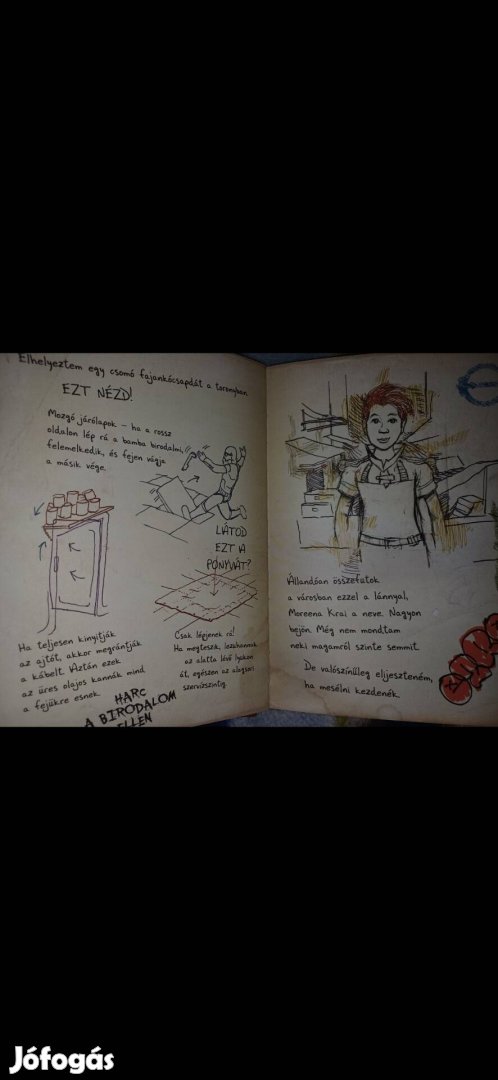 Elhelyeztem egy csomó fajankócsapdát a toronyban.
EZT NÉZD!
Mozgó járólapok – ha a rossz
oldalon lép rá a bamba birodalmi,
felemelkedik, és fejen vágja
a másik vége.
LÁTOD
EZT A
PONYVÁT?
Ha teljesen kinyitják
az ajtót, akkor megrántják
a kábelt. Aztán ezek
az üres olajos kannák mind
a fejükre esnek.
Csak lépjenek rá!
Ha megteszik, lezuhannak
az alatta lévő lyukon
át, egészen az alagsori
szervizszintig.
HARC
A BIRODALOM
ELLEN
Állandóan összefutok
a városban ezzel a lánnyal,
Moreena Krai a neve. Nagyon
bejön. Még nem mondtam
neki magamról szinte semmit.
De valószínűleg elijeszteném,
ha mesélni kezdenék.
Jófogás